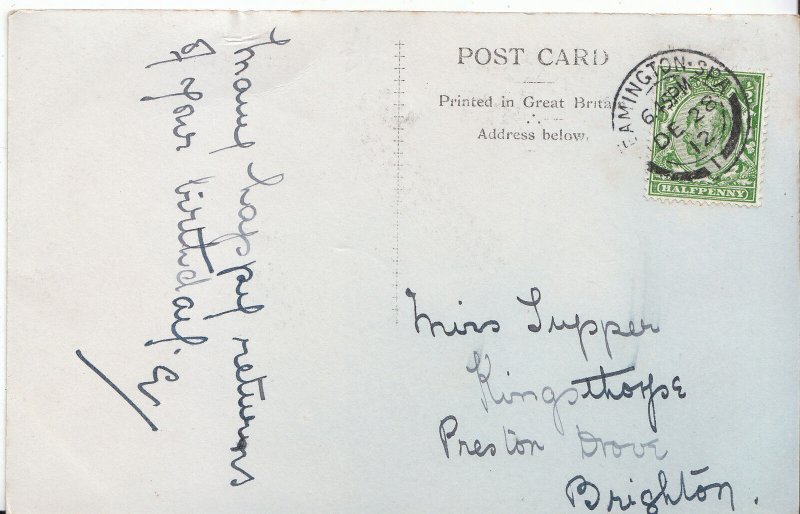 many happy returns
of your birthday. E.
POST CARD
Printed in Great Britain
Address below.
LEAMINGTON·SPA
6 15PM
DE 28
12
1
HALFPENNY
Miss Tupper
Kingsthorpe
Preston Drove
Brighton.